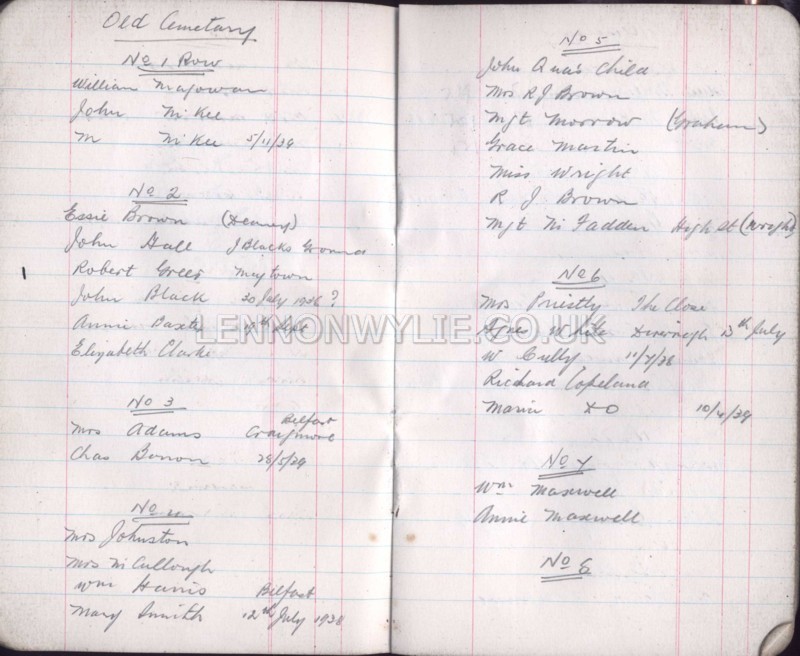 Old Cemetary
No 1 Row
William Magowan
John McKee
M McKee 5/11/39
No 2
Essie Brown
John Hall J Blacks Ground
Robert Greer
John Black 30 July 1936?
Annie Baxter Sept
Elizabeth Clarke
No 3
Belfast
Mrs Adams Craigmore
Chas Benson 28/5/39
No 4
Mrs Johnston
Mrs McCullough
Wm Harris Belfast
Mary Smith 12th July 1938
No 5
John Qua's Child
Mrs R J Brown
Mgt Morrow (Graham)
Grace Martin
Miss Wright
R J Brown
Mgt McFadden High St (Wright)
No 6
Mrs Priestly The Close
Agnes White 13th July
W Cully
Richard Copeland
Maria DO 10/4/39
No 7
Wm Maxwell
Annie Maxwell
No 8
LENNONWYLIE.CO.UK